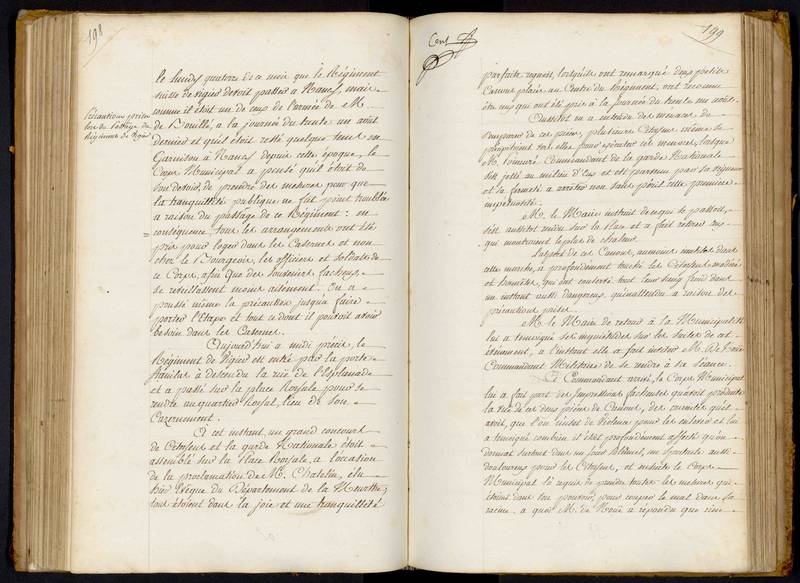 198
le lundy quatorze de ce mois que le Régiment
suisse de vigier devoit passer a Nancy, mais
comme il étoit un de ceux de l'armée de M.
de Bouillé, a la journée du trente un aoust
dernier et qu'il étoit resté quelque tems en
Garnison à Nancy depuis cette époque, le
Corps Municipal a pensé qu'il étoit de
son devoir, de prendre des mesures pour que
la tranquillité publique ne fut point troublée
a raison du passage de ce Régiment : en
conséquence, tous les arrangements ont été
pris pour loger dans les Casernes et non
chez le Bourgeois, les officiers et soldats de
ce Corps, afin que des souvenirs facheux,
se reveillassent moins aisément. On a
poussé même la précaution jusqu'a faire
porter l'Etape et tout ce dont il pouroit avoir
besoin dans les Casernes.
Précautions prises
lors du passage du
Régiment de Vigier
Aujourd'hui a midi précis, le
Régiment de Vigier est entré par la porte
Stanislas, à descendu la rüe de l'Esplanade
et a passé sur la place Royale pour se
rendre au quartier Royal, lieu de son
Cazernement.
A cet instant, un grand concours
de Citoyens et la garde Nationale étoit
assemblé sur la Place Royale, a l'occasion
de la proclamation de M. Chatelin, élu
hier Evêque du Département de la Meurthe;
tous étoient dans la joie et une tranquillité
Cent
199
parfaite regnoit, lorsqu'ils ont remarqué deux petits
Canons placés au Centre du Régiment, ont reconnu
être ceux qui ont été pris à la journée du trente un aoust.
Aussitot on a entendu des menaces de
s'emparer de ces pieces, plusieurs Citoyens même se
précipitoient sur elles pour exécuter ces menaces, lorsque
M. Commandant de la garde Nationale
s'est jetté au milieu d'Eux et est parvenu par sa vigueur
et sa fermeté a arrêter non sans péril cette premiere
impétuosité.
M. le Maire instruit de ce qui se passoit,
s'est aussitot rendu sur la place et a fait retirer ceux
qui montroient le plus de chaleur.
L'aspect de ces Canons, au moins inutiles dans
cette marche, a profondément touché les Citoyens modérés
et honnêtes, qui ont conservé tout leur sang froid dans
un instant aussi dangereux, qu'inattendu a raison des
précautions prises.
M. le Maire de retour à la Municipalité
lui a témoigné ses inquiétudes sur les suites de cet
évènement, a l'instant elle a fait inviter M. De Noüe
Commandant Militaire de se rendre à sa séance.
Ce Commandant arrivé, le Corps Municipal
lui a fait part des impressions facheuses qu'avoit produites
la vüe de ces deux pieces de Canons, des craintes qu'il
avoit, que l'on n'usa de violence pour les enlever et lui
a témoigné combien il étoit profondément affecté qu'on
donnat surtout dans un jour solemnel, un spectacle aussi
douloureux pour les Citoyens, et ensuite le Corps
Municipal l'a requis de prendre toutes les mesures qui
étoient dans son pouvoir, pour couper le mal dans sa
racine. a quoi M. de Noüe a répondu que rien